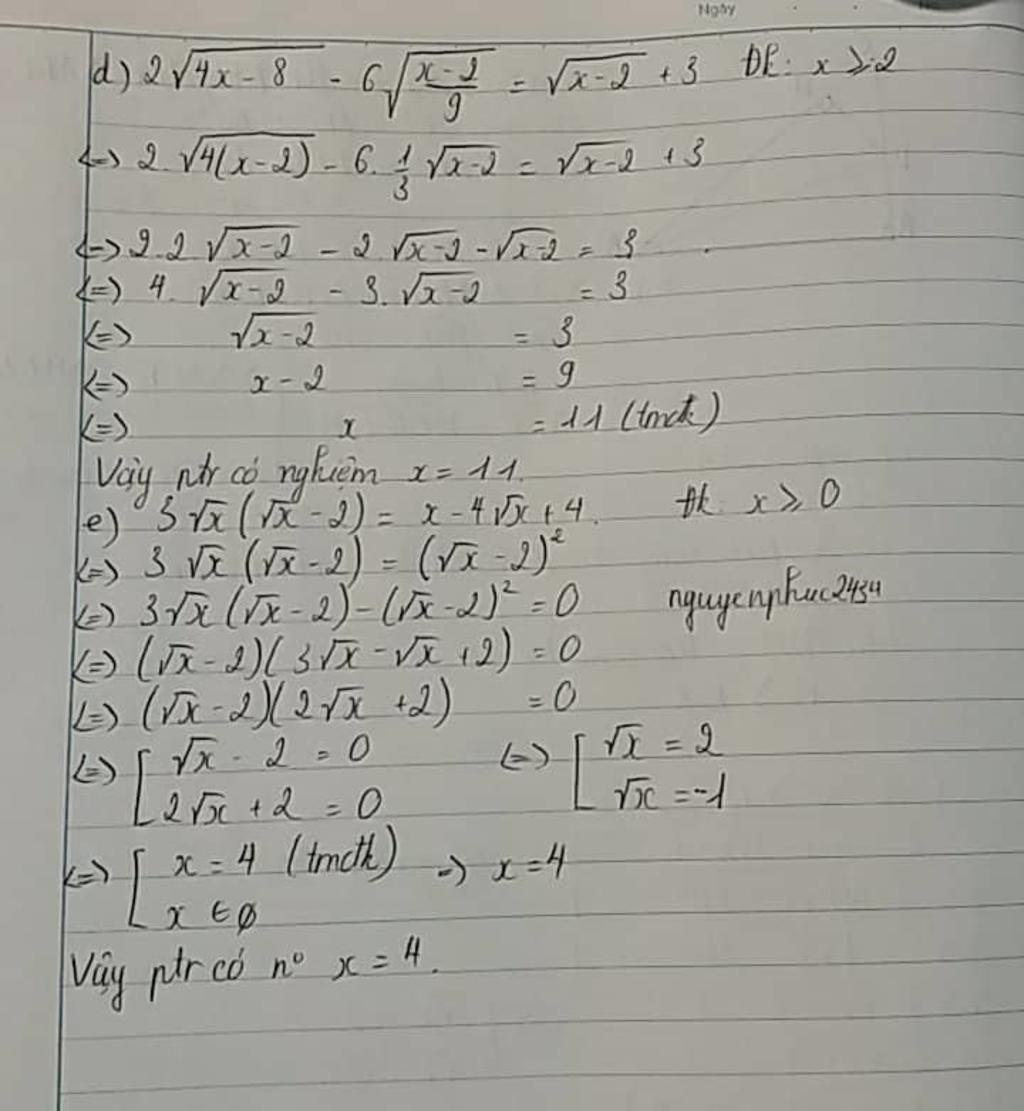 Ngày
d) 2√(4x-8) - 6√((x-2)/9) = √(x-2) + 3 đk: x ≥ 2
<=> 2.√(4(x-2)) - 6.1/3 √(x-2) = √(x-2) + 3
<=> 2.2 √(x-2) - 2.√(x-2) - √(x-2) = 3
<=> 4.√(x-2) - 3.√(x-2) = 3
<=> √(x-2) = 3
<=> x - 2 = 9
<=> x = 11 (tmđk)
Vậy ptr có nghiệm x = 11.
e) 3√x(√x - 2) = x - 4√x + 4. đk: x ≥ 0
<=> 3√x(√x - 2) = (√x - 2)²
<=> 3√x(√x - 2) - (√x - 2)² = 0 nguyenphuc2434
<=> (√x - 2)(3√x - √x + 2) = 0
<=> (√x - 2)(2√x + 2) = 0
<=> [ √x - 2 = 0 <=> [ √x = 2
2√x + 2 = 0 √x = -1
<=> [ x = 4 (tmđk) => x = 4
x ∈ ∅
Vậy ptr có n° x = 4.